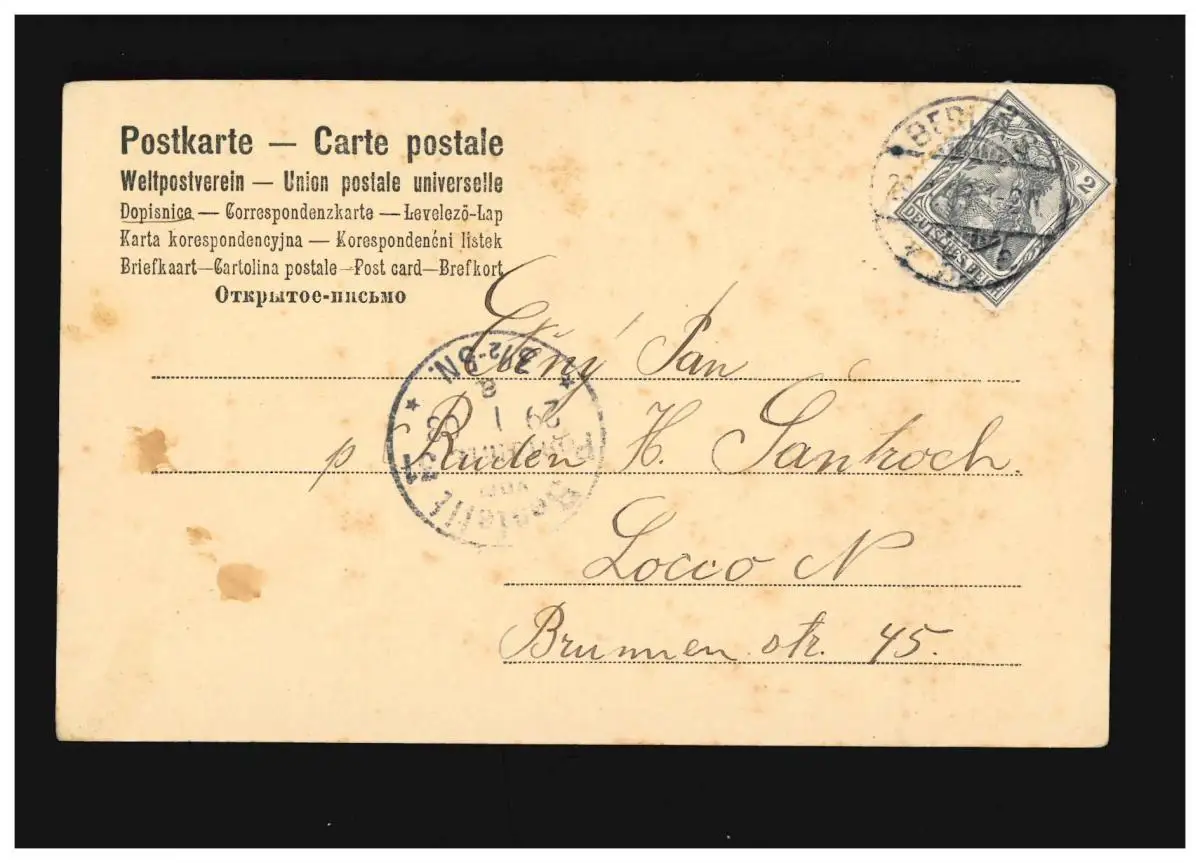 Postkarte — Carte postale
Weltpostverein — Union postale universelle
Dopisnice — Correspondenzkarte — Levelező-Lap
Karta korespondencyjna — Korespondenční listek
Briefkaart—Cartolina postale—Post card—Brefkort
Открытое-письмо
2
DEUTSCHES REICH
BERLIN
Ctěný Pán
p Ruden H. Santroch.
Locco N
Brunnen str. 45.
Bestellt
vom
Postamte
31
29 1 03
8
3½-5N.